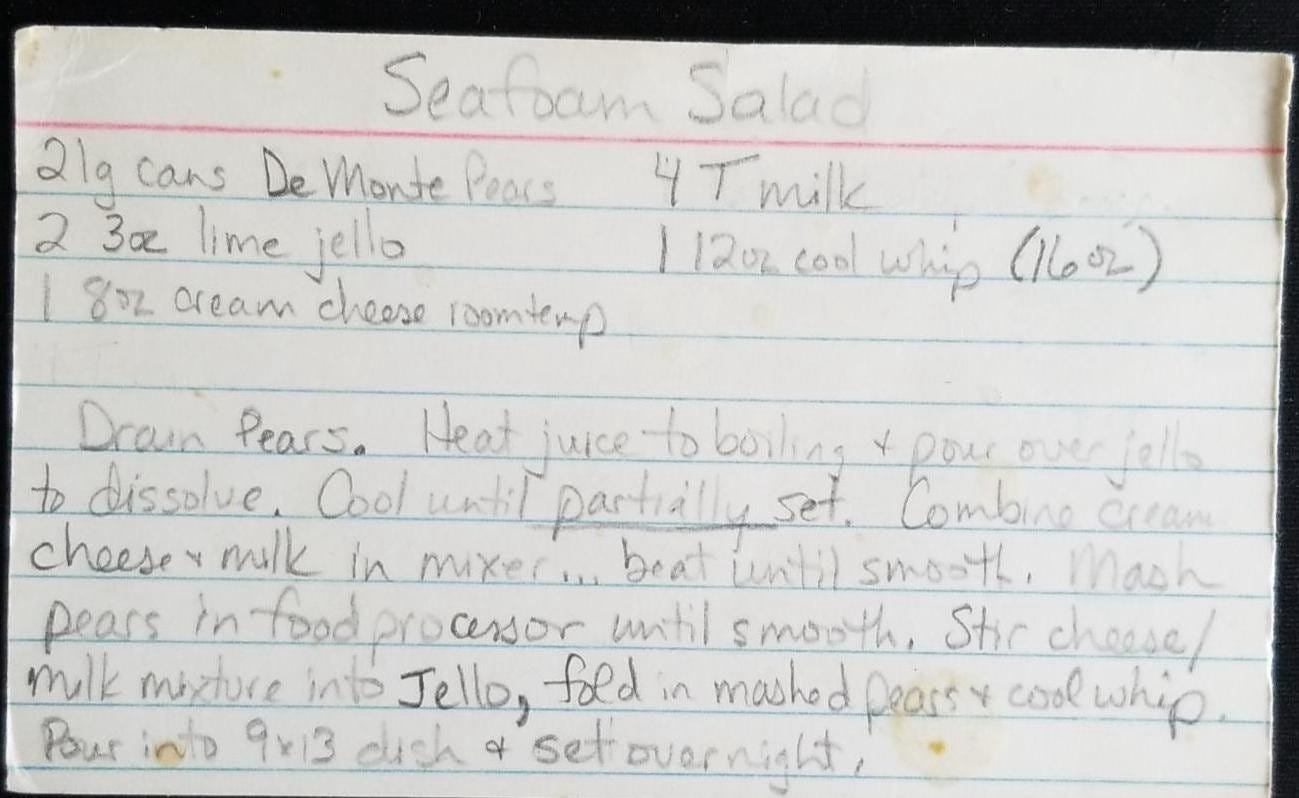 Seafoam Salad
2 lg cans De Monte Pears 4 T milk
2 3oz lime jello 1 12oz cool whip (16oz)
1 8oz cream cheese roomtemp
Drain Pears. Heat juice to boiling & pour over jello
to dissolve. Cool until partially set. Combine cream
cheese & milk in mixer... beat until smooth. Mash
pears in food processor until smooth. Stir cheese/
milk mixture into Jello, fold in mashed pears & cool whip.
Pour into 9x13 dish & set overnight.